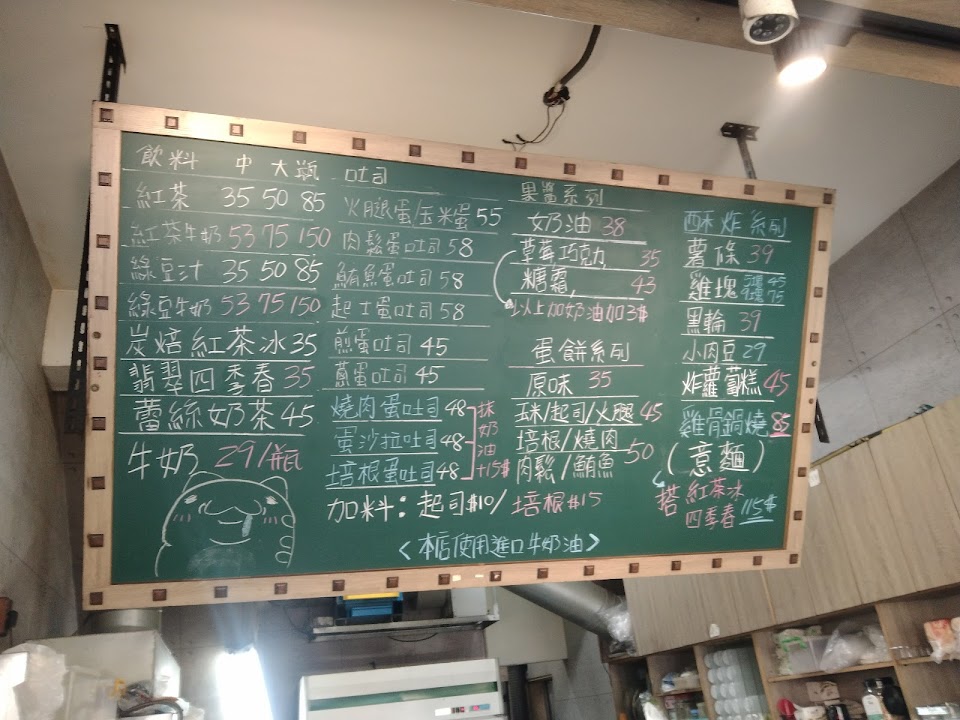 飲料 中 大 瓶
紅茶 35 50 85
紅茶牛奶 53 75 150
綠豆汁 35 50 85
綠豆牛奶 53 75 150
炭焙紅茶冰 35
翡翠四季春 35
蕾絲奶茶 45
牛奶 29/瓶
吐司
火腿蛋/玉米蛋 55
肉鬆蛋吐司 58
鮪魚蛋吐司 58
起士蛋吐司 58
煎蛋吐司 45
蔥蛋吐司 45
燒肉蛋吐司 48
蛋沙拉吐司 48
培根蛋吐司 48
抹奶油+15$
加料：起司$10/培根$15
果醬系列
奶油 38
草莓巧克力, 35
糖霜, 43
以上加奶油加3$
蛋餅系列
原味 35
玉米/起司/火腿 45
培根/燒肉
肉鬆/鮪魚 50
酥炸系列
薯條 39
雞塊 5塊 45
9塊 75
黑輪 39
小肉豆 29
炸蘿蔔糕 45
雞骨鍋燒 85
(意麵)
搭 紅茶冰
四季春 115$
<本店使用進口牛奶油>